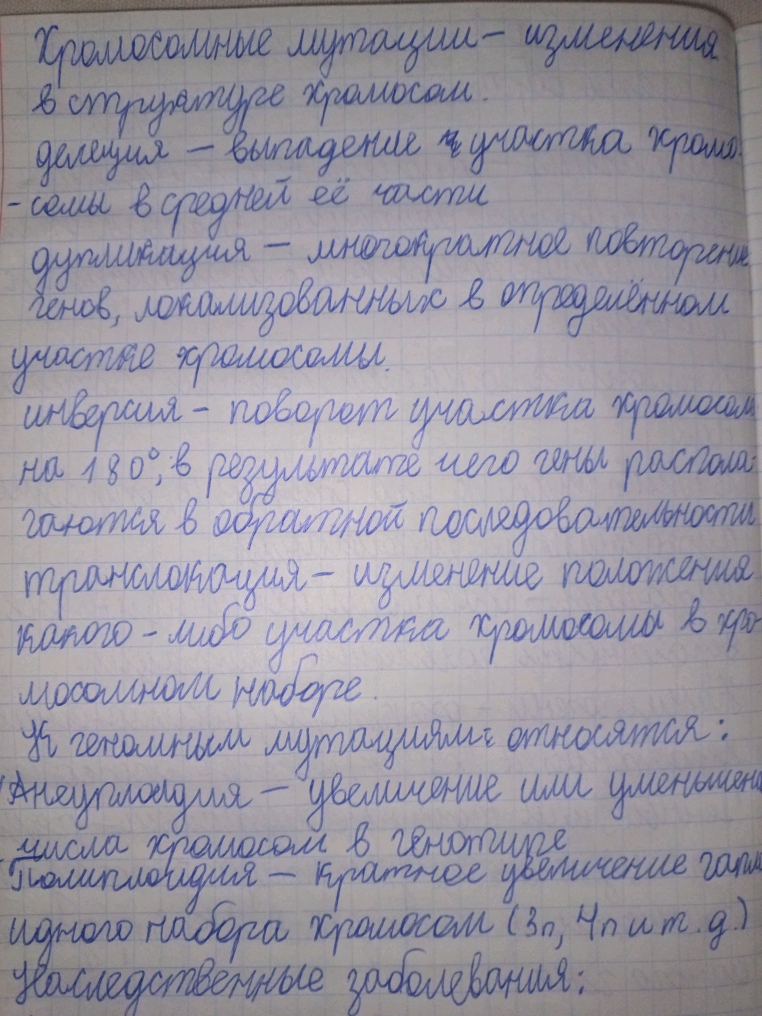 Хромосомные мутации – изменения
в структуре хромосом.
делеция – выпадение участка хромо-
-сомы в средней её части
дупликация – многократное повторение
генов, локализованных в определённом
участке хромосомы.
инверсия – поворот участка хромосом
на 180°, в результате чего гены распола-
гаются в обратной последовательности
транслокация – изменение положения
какого-либо участка хромосомы в хро-
мосомном наборе.
К геномным мутациям относятся:
Анеуплоидия – увеличение или уменьшение
числа хромосом в генотипе
Полиплоидия – кратное увеличение гапло
идного набора хромосом (3n, 4n и т.д.)
Наследственные заболевания: